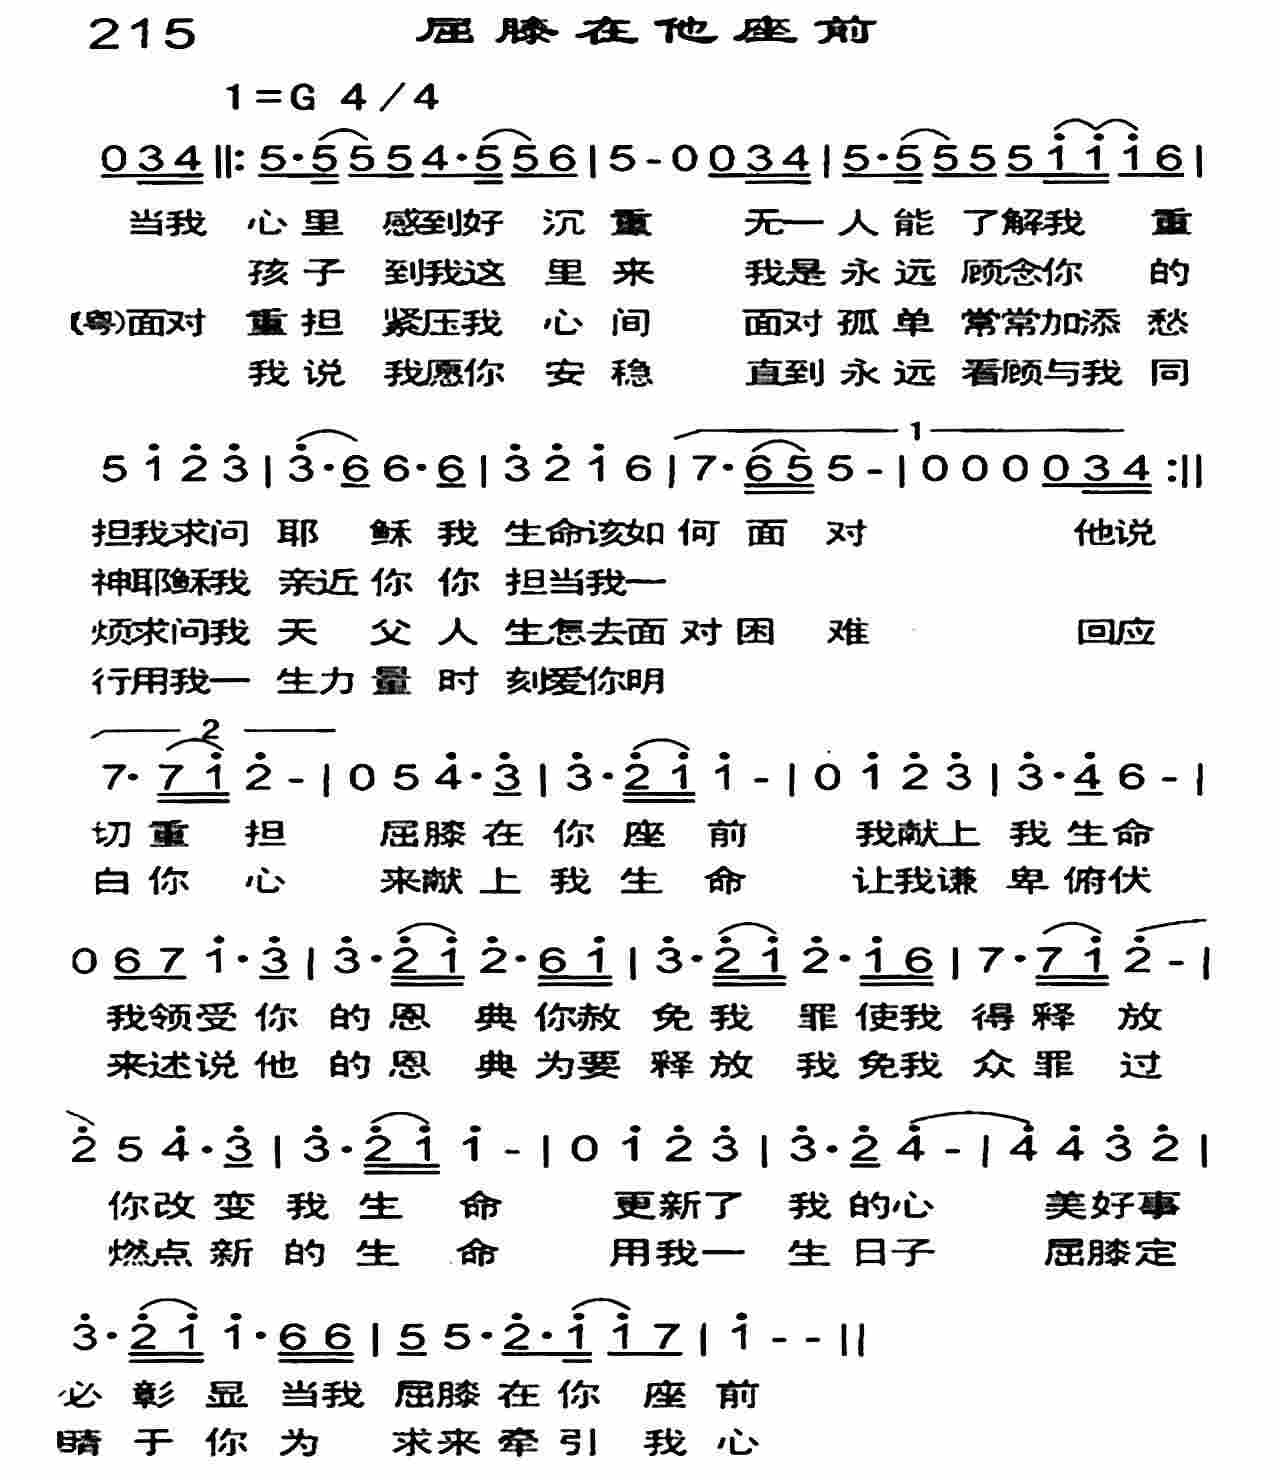 215 屈膝在他座前
1=G 4/4
034‖:5·5554·556|5-0034|5·5555i̇i̇i̇6|
当我 心里 感到好 沉重 无一人能 了解我 重
孩子 到我这 里来 我是永远 顾念你 的
(粤)面对 重担 紧压我 心间 面对孤单 常常加添 愁
我说 我愿你 安稳 直到永远 看顾与我 同
5 i̇ 2̇ 3̇|3̇·6 6·6|3̇ 2̇ i̇ 6|7·65 5-|000034:‖
1
担我求问 耶 稣 我 生命该如 何 面 对 他说
神耶稣我 亲近 你 你 担当我一
烦求问我 天 父 人 生怎去面 对 困 难 回应
行用我一 生力 量 时 刻爱你明
2
7·7i̇ 2̇-|0 5 4̇·3̇|3̇·2̇i̇ i̇-|0 i̇ 2̇ 3̇|3̇·4̇ 6-|
切 重 担 屈膝 在 你 座 前 我献上 我 生命
白 你 心 来献 上 我 生 命 让我谦 卑 俯伏
0 67 i̇·3̇|3̇·2̇i̇ 2̇·6i̇|3̇·2̇i̇ 2̇·i̇6|7·7i̇ 2̇-|
我领受 你 的 恩 典 你赦 免 我 罪 使我 得 释 放
来述说 他 的 恩 典 为要 释 放 我 免我 众 罪 过
2̇ 5 4̇·3̇|3̇·2̇i̇ i̇-|0 i̇ 2̇ 3̇|3̇·2̇ 4̇-|4̇ 4̇ 3̇ 2̇|
你改 变 我 生 命 更新了 我 的心 美好事
燃点 新 的 生 命 用我一 生 日子 屈膝定
3̇·2̇i̇ i̇·66|5 5·2̇·i̇i̇7|i̇--‖
必 彰 显 当我 屈膝 在 你 座 前
睛 于 你 为 求来 牵 引 我 心